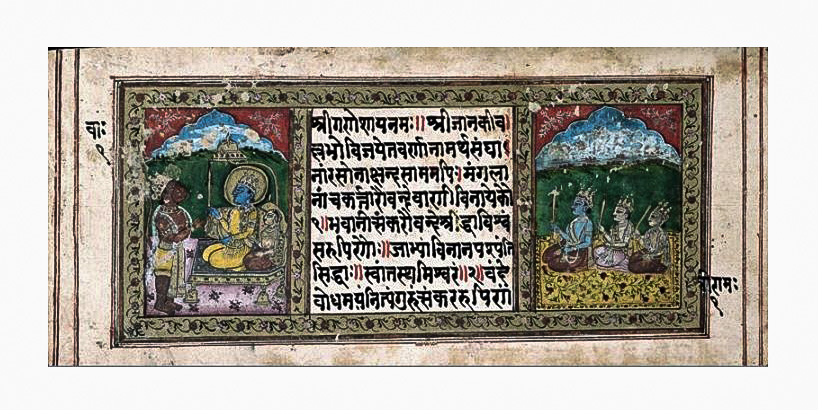 वाः
१
श्रीगणेशायनमः॥ श्रीजानकीव
ल्लभोविजयेतवर्णानामर्थसंघा
नांरसानाछन्दसामपि। मंगला
नांचकर्त्तारौवन्देवाणीविनायकौ
१॥भवानीसंकरौवन्देश्रद्धाविस्व
सरुपिणौ।जाभ्याविनानपस्यंति
सिद्धाः॥स्वांतस्थमिस्वरं॥२॥वंदे
वोधमयंनित्यंगुरुंसंकररुपिणं
रामः
१